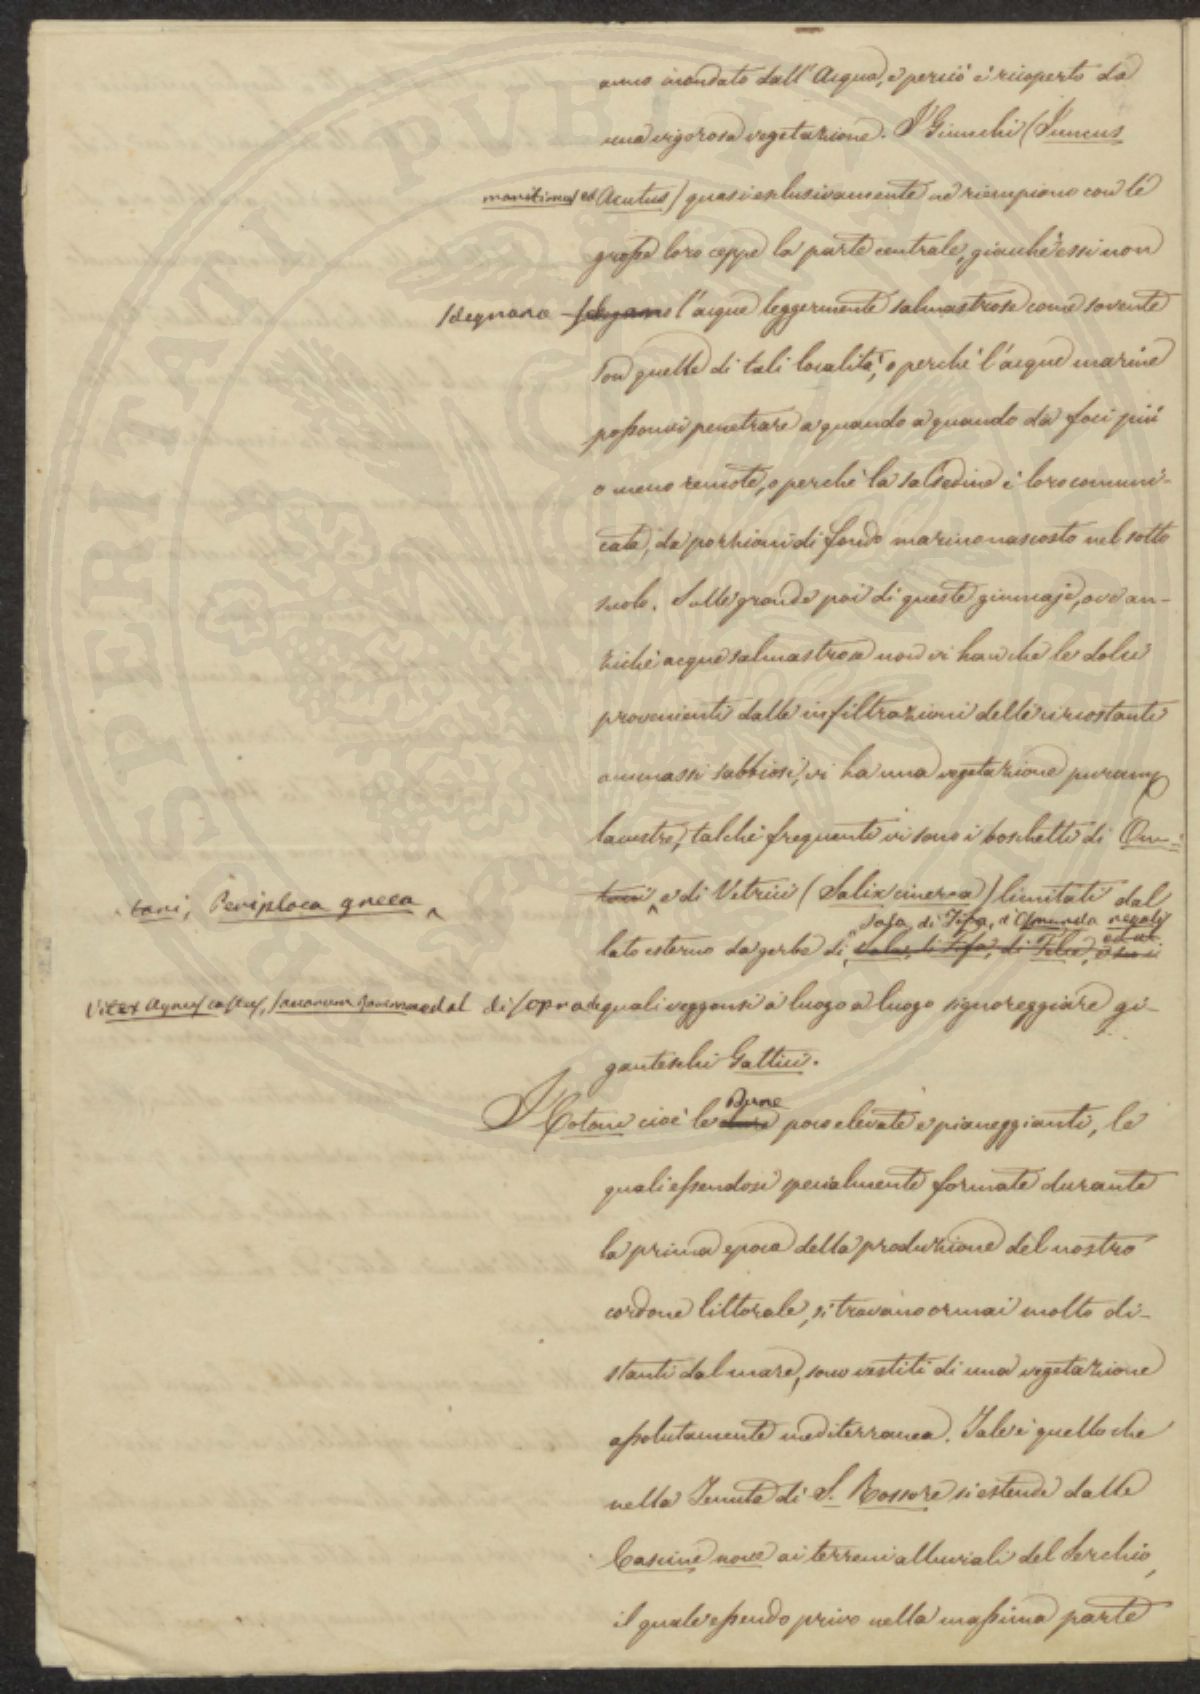 anno inondato dall'Acqua, e perciò è ricoperto da
una vigorosa vegetazione. I Giunchi (Juncus
maritimus et Acutus) quasi esclusivamente ne riempiono con le
grosse loro ceppe la parte centrale, giacchè essi non
sdegnano l'acque leggermente salmastrose come sovente
son quelle di tali località, o perchè l'acque marine
possonvi penetrare a quando a quando da foci più
o meno remote, o perchè la salsedine è loro comuni-
cata, da porzioni di fondo marino nascosto nel sotto
suolo. Sulle grande poi di queste giuncaje, ove an-
zichè acque salmastrose non vi han che le dolci
provenienti dalle infiltrazioni delle circostanti
ammassi sabbiosi, vi ha una vegetazione puram.
lacustre, talchè frequenti vi sono i boschetti di On-
tani, Periploca greca e di Vetrici (Salix cinerea) limitati dal
Sala, di Tifa, d'Osmunda regalis
lato esterno da gerbe di Sala, di Tifa, di Felce,
Vitex Agnus castus, al di sopra de quali veggonsi a luogo a luogo signoreggiare gi-
ganteschi Gattici.
Dune
I Cotoni cioè le dune poco elevate e pianeggianti, le
quali essendosi specialmente formate durante
la prima epoca della produzione del nostro
cordone littorale, si trovano ormai molto di-
stanti dal mare, sono vestiti di una vegetazione
assolutamente mediterranea. Tale è quello che
nella Tenuta di S. Rossore si estende dalle
Cascine nove ai terreni alluviali del Serchio,
il quale essendo privo nella massima parte